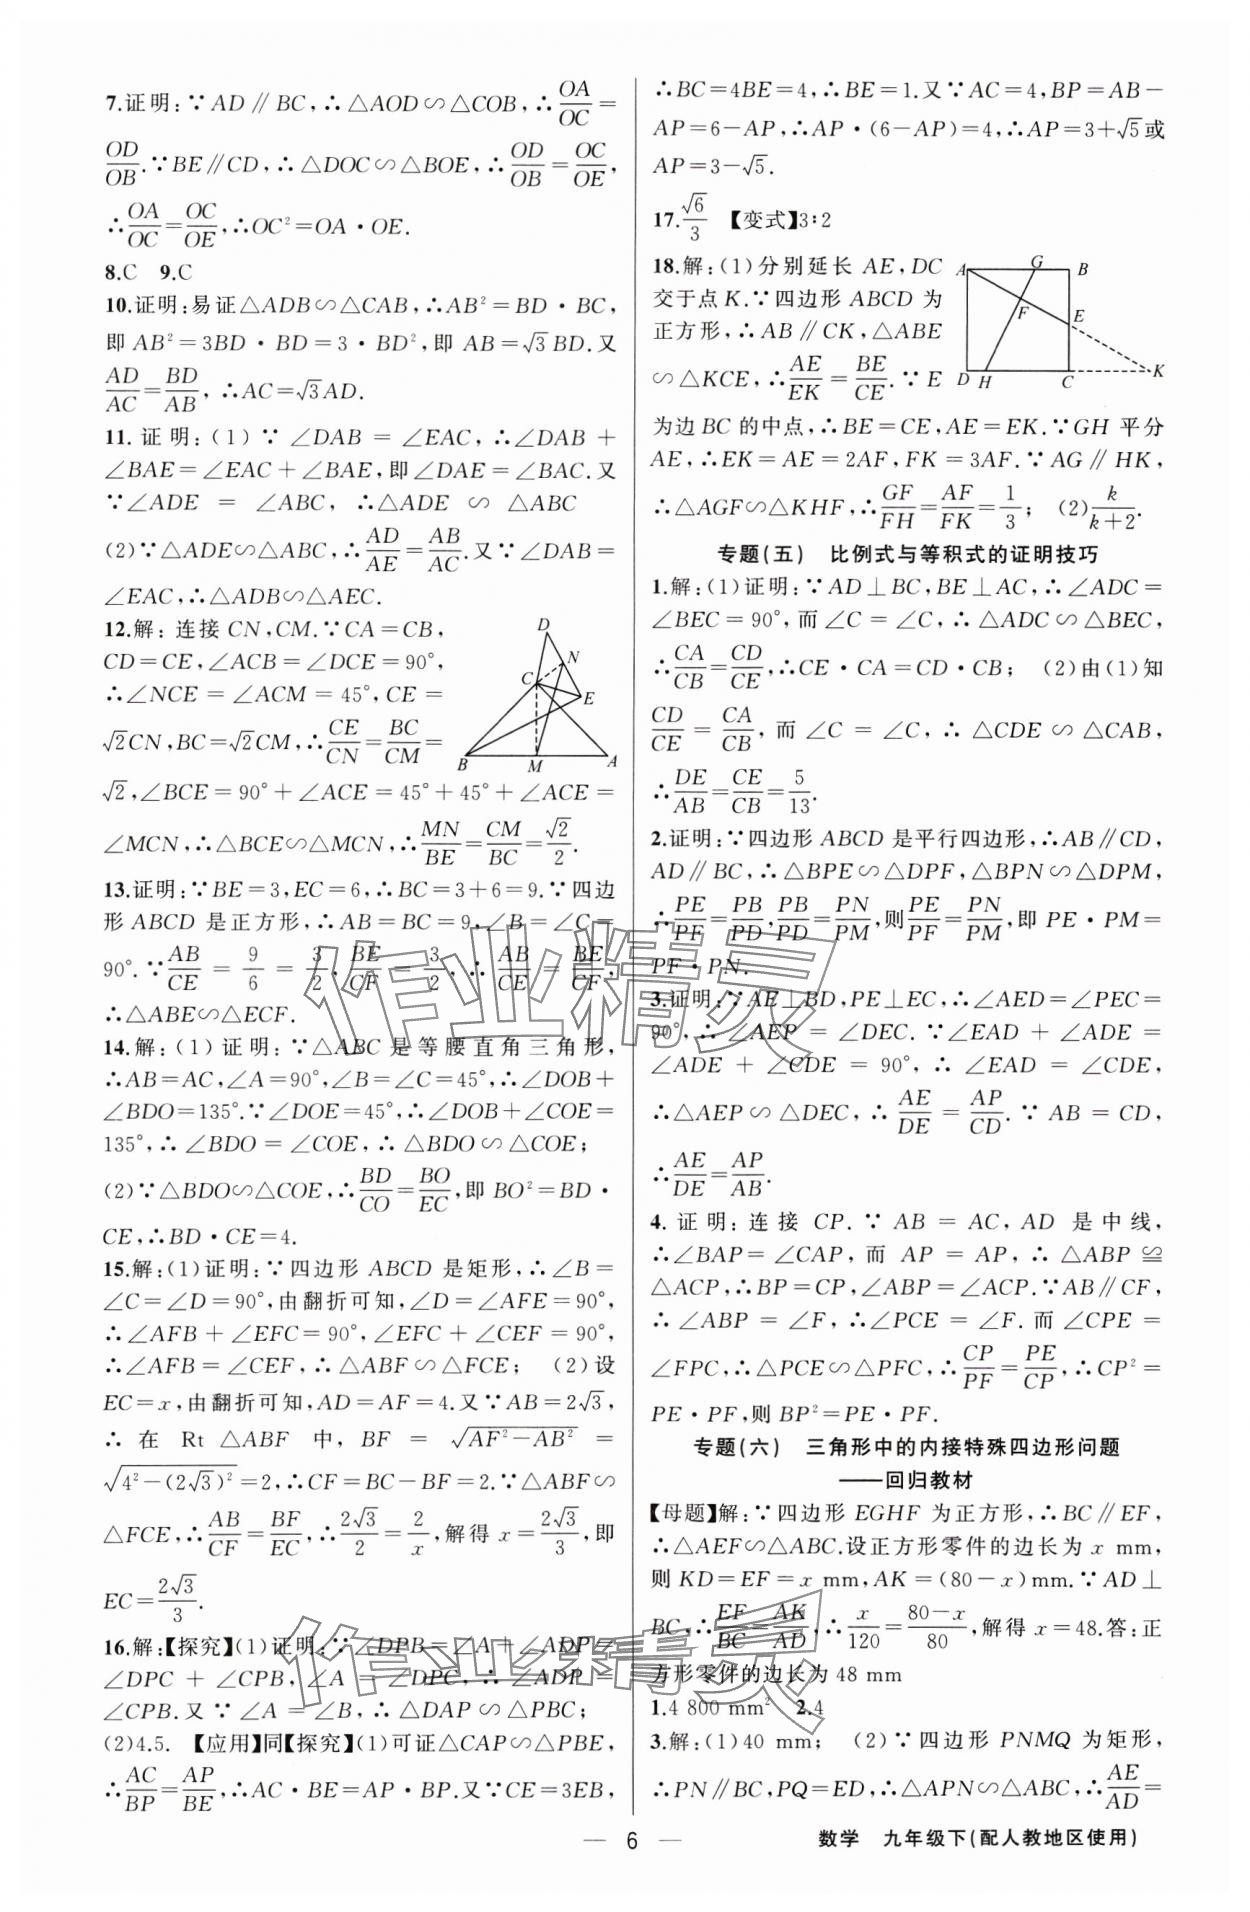 7.证明:∵AD∥BC,∴△AOD∽△COB,∴OA/OC=
OD/OB.∵BE∥CD,∴△DOC∽△BOE,∴OD/OB=OC/OE,
∴OA/OC=OC/OE,∴OC²=OA·OE.
8.C 9.C
10.证明:易证△ADB∽△CAB,∴AB²=BD·BC,
即AB²=3BD·BD=3·BD²,即AB=√3BD.又
AD/AC=BD/AB,∴AC=√3AD.
11.证明:(1)∵∠DAB=∠EAC,∴∠DAB+
∠BAE=∠EAC+∠BAE,即∠DAE=∠BAC.又
∵∠ADE=∠ABC,∴△ADE∽△ABC
(2)∵△ADE∽△ABC,∴AD/AE=AB/AC.又∵∠DAB=
∠EAC,∴△ADB∽△AEC.
12.解:连接CN,CM.∵CA=CB,
CD=CE,∠ACB=∠DCE=90°,
∴∠NCE=∠ACM=45°,CE=
√2CN,BC=√2CM,∴CE/CN=BC/CM=
√2,∠BCE=90°+∠ACE=45°+45°+∠ACE=
∠MCN,∴△BCE∽△MCN,∴MN/BE=CM/BC=√2/2.
D
N
C
E
B M A
13.证明:∵BE=3,EC=6,∴BC=3+6=9.∵四边
形ABCD是正方形,∴AB=BC=9,∠B=∠C=
90°.∵AB/CE=9/6=3/2,BE/CF=3/2,∴AB/CE=BE/CF,
∴△ABE∽△ECF.
14.解:(1)证明:∵△ABC是等腰直角三角形,
∴AB=AC,∠A=90°,∠B=∠C=45°,∴∠DOB+
∠BDO=135°.∵∠DOE=45°,∴∠DOB+∠COE=
135°,∴∠BDO=∠COE,∴△BDO∽△COE;
(2)∵△BDO∽△COE,∴BD/CO=BO/EC,即BO²=BD·
CE,∴BD·CE=4.
15.解:(1)证明:∵四边形ABCD是矩形,∴∠B=
∠C=∠D=90°,由翻折可知,∠D=∠AFE=90°,
∴∠AFB+∠EFC=90°,∠EFC+∠CEF=90°,
∴∠AFB=∠CEF,∴△ABF∽△FCE; (2)设
EC=x,由翻折可知,AD=AF=4.又∵AB=2√3,
∴在Rt△ABF中,BF=√(AF²-AB²)=
√(4²-(2√3)²)=2,∴CF=BC-BF=2.∵△ABF∽
△FCE,∴AB/CF=BF/EC,∴2√3/2=2/x,解得x=2√3/3,即
EC=2√3/3.
16.解:【探究】(1)证明:∵∠DPB=∠A+∠ADP=
∠DPC+∠CPB,∠A=∠DPC,∴∠ADP=
∠CPB.又∵∠A=∠B,∴△DAP∽△PBC;
(2)4.5. 【应用】同【探究】(1)可证△CAP∽△PBE,
∴AC/BP=AP/BE,∴AC·BE=AP·BP.又∵CE=3EB,
∴BC=4BE=4,∴BE=1.又∵AC=4,BP=AB-
AP=6-AP,∴AP·(6-AP)=4,∴AP=3+√5或
AP=3-√5.
17.√6/3 【变式】3∶2
18.解:(1)分别延长AE,DC
交于点K.∵四边形ABCD为
正方形,∴AB∥CK,△ABE
∽△KCE,∴AE/EK=BE/CE.∵E
为边BC的中点,∴BE=CE,AE=EK.∵GH平分
AE,∴EK=AE=2AF,FK=3AF.∵AG∥HK,
∴△AGF∽△KHF,∴GF/FH=AF/FK=1/3; (2)k/(k+2).
A G B
F E
D H C K
专题(五) 比例式与等积式的证明技巧
1.解:(1)证明:∵AD⊥BC,BE⊥AC,∴∠ADC=
∠BEC=90°,而∠C=∠C,∴△ADC∽△BEC,
∴CA/CB=CD/CE,∴CE·CA=CD·CB; (2)由(1)知
CD/CE=CA/CB,而∠C=∠C,∴△CDE∽△CAB,
∴DE/AB=CE/CB=5/13.
2.证明:∵四边形ABCD是平行四边形,∴AB∥CD,
AD∥BC,∴△BPE∽△DPF,△BPN∽△DPM,
∴PE/PF=PB/PD,PB/PD=PN/PM,则PE/PF=PN/PM,即PE·PM=
PF·PN.
3.证明:∵AE⊥BD,PE⊥EC,∴∠AED=∠PEC=
90°,∴∠AEP=∠DEC.∵∠EAD+∠ADE=
∠ADE+∠CDE=90°,∴∠EAD=∠CDE,
∴△AEP∽△DEC,∴AE/DE=AP/CD.∵AB=CD,
∴AE/DE=AP/AB.
4.证明:连接CP.∵AB=AC,AD是中线,
∴∠BAP=∠CAP,而AP=AP,∴△ABP≌
△ACP,∴BP=CP,∠ABP=∠ACP.∵AB∥CF,
∴∠ABP=∠F,∴∠PCE=∠F.而∠CPE=
∠FPC,∴△PCE∽△PFC,∴CP/PF=PE/CP,∴CP²=
PE·PF,则BP²=PE·PF.
专题(六) 三角形中的内接特殊四边形问题
——回归教材
【母题】解:∵四边形EGHF为正方形,∴BC∥EF,
∴△AEF∽△ABC.设正方形零件的边长为x mm,
则KD=EF=x mm,AK=(80-x)mm.∵AD⊥
BC,∴EF/BC=AK/AD,∴x/120=(80-x)/80,解得x=48.答:正
方形零件的边长为48 mm
1.4 800 mm² 2.4
3.解:(1)40 mm; (2)∵四边形PNMQ为矩形,
∴PN∥BC,PQ=ED,∴△APN∽△ABC,∴AE/AD=
— 6 —
数学 九年级下(配人教地区使用)
作业精灵
作业精灵